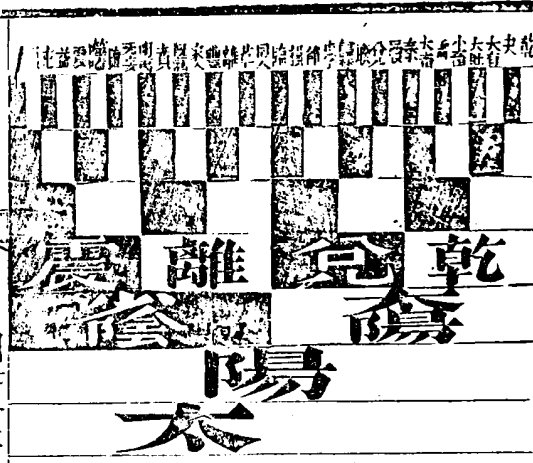 乾 夬 大有 大壯 小畜 需 大畜 泰 履 兌 睽 歸妹 中孚 節 損 臨 同人 革 離 豐 家人 既濟 賁 明夷 无妄 隨 噬嗑 震 益 屯
乾 兌 離 震
太陽 陰
陽
太